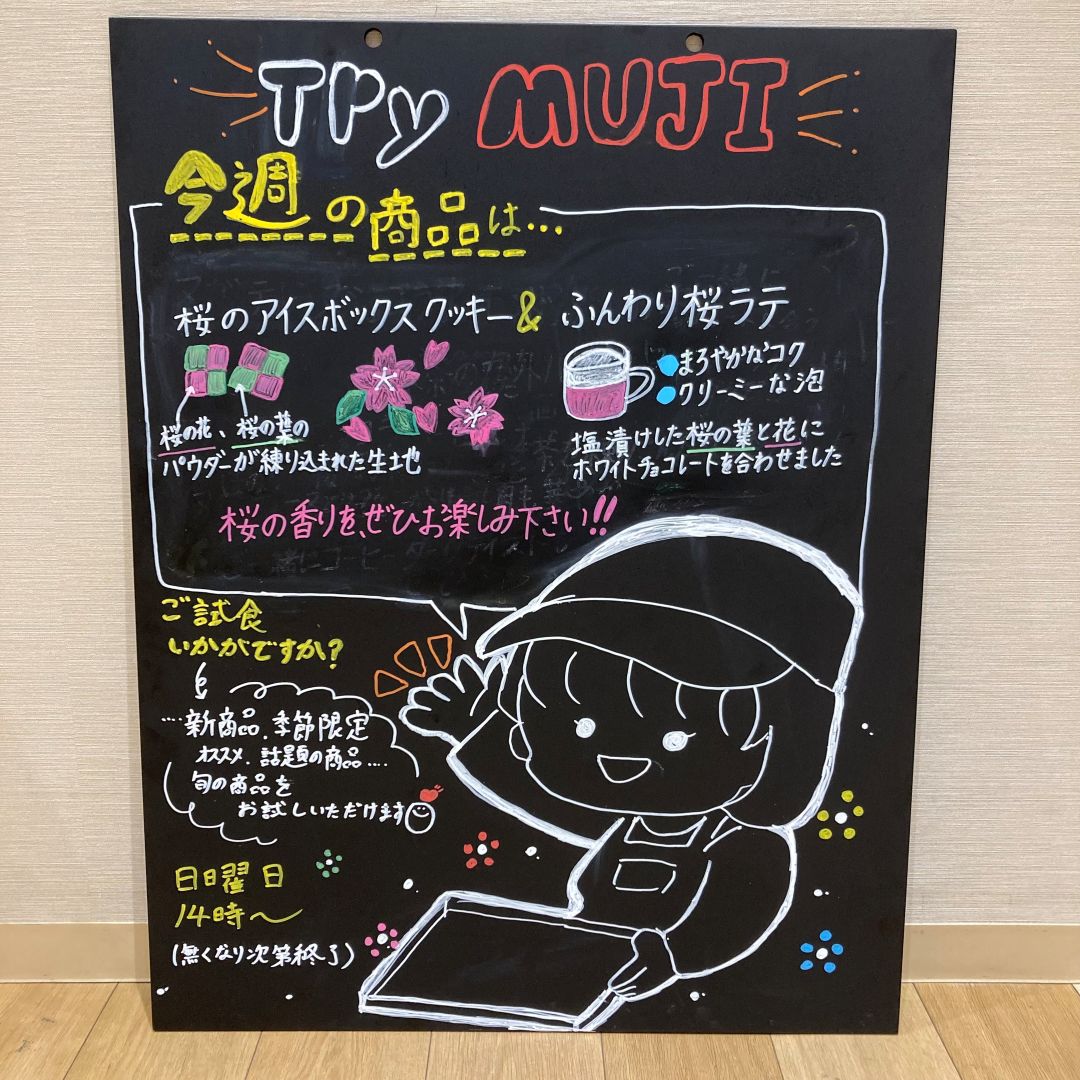 Try MUJI
今週の商品は…
桜のアイスボックスクッキー & ふんわり桜ラテ
桜の花、桜の葉の
パウダーが練り込まれた生地
まろやかなコク
クリーミーな泡
塩漬けした桜の葉と花に
ホワイトチョコレートを合わせました
桜の香りを、ぜひお楽しみ下さい!!
ご試食
いかがですか?
‥‥新商品、季節限定
オススメ、話題の商品‥‥
旬の商品を
お試しいただけます
日曜日
14時〜
(無くなり次第終了)